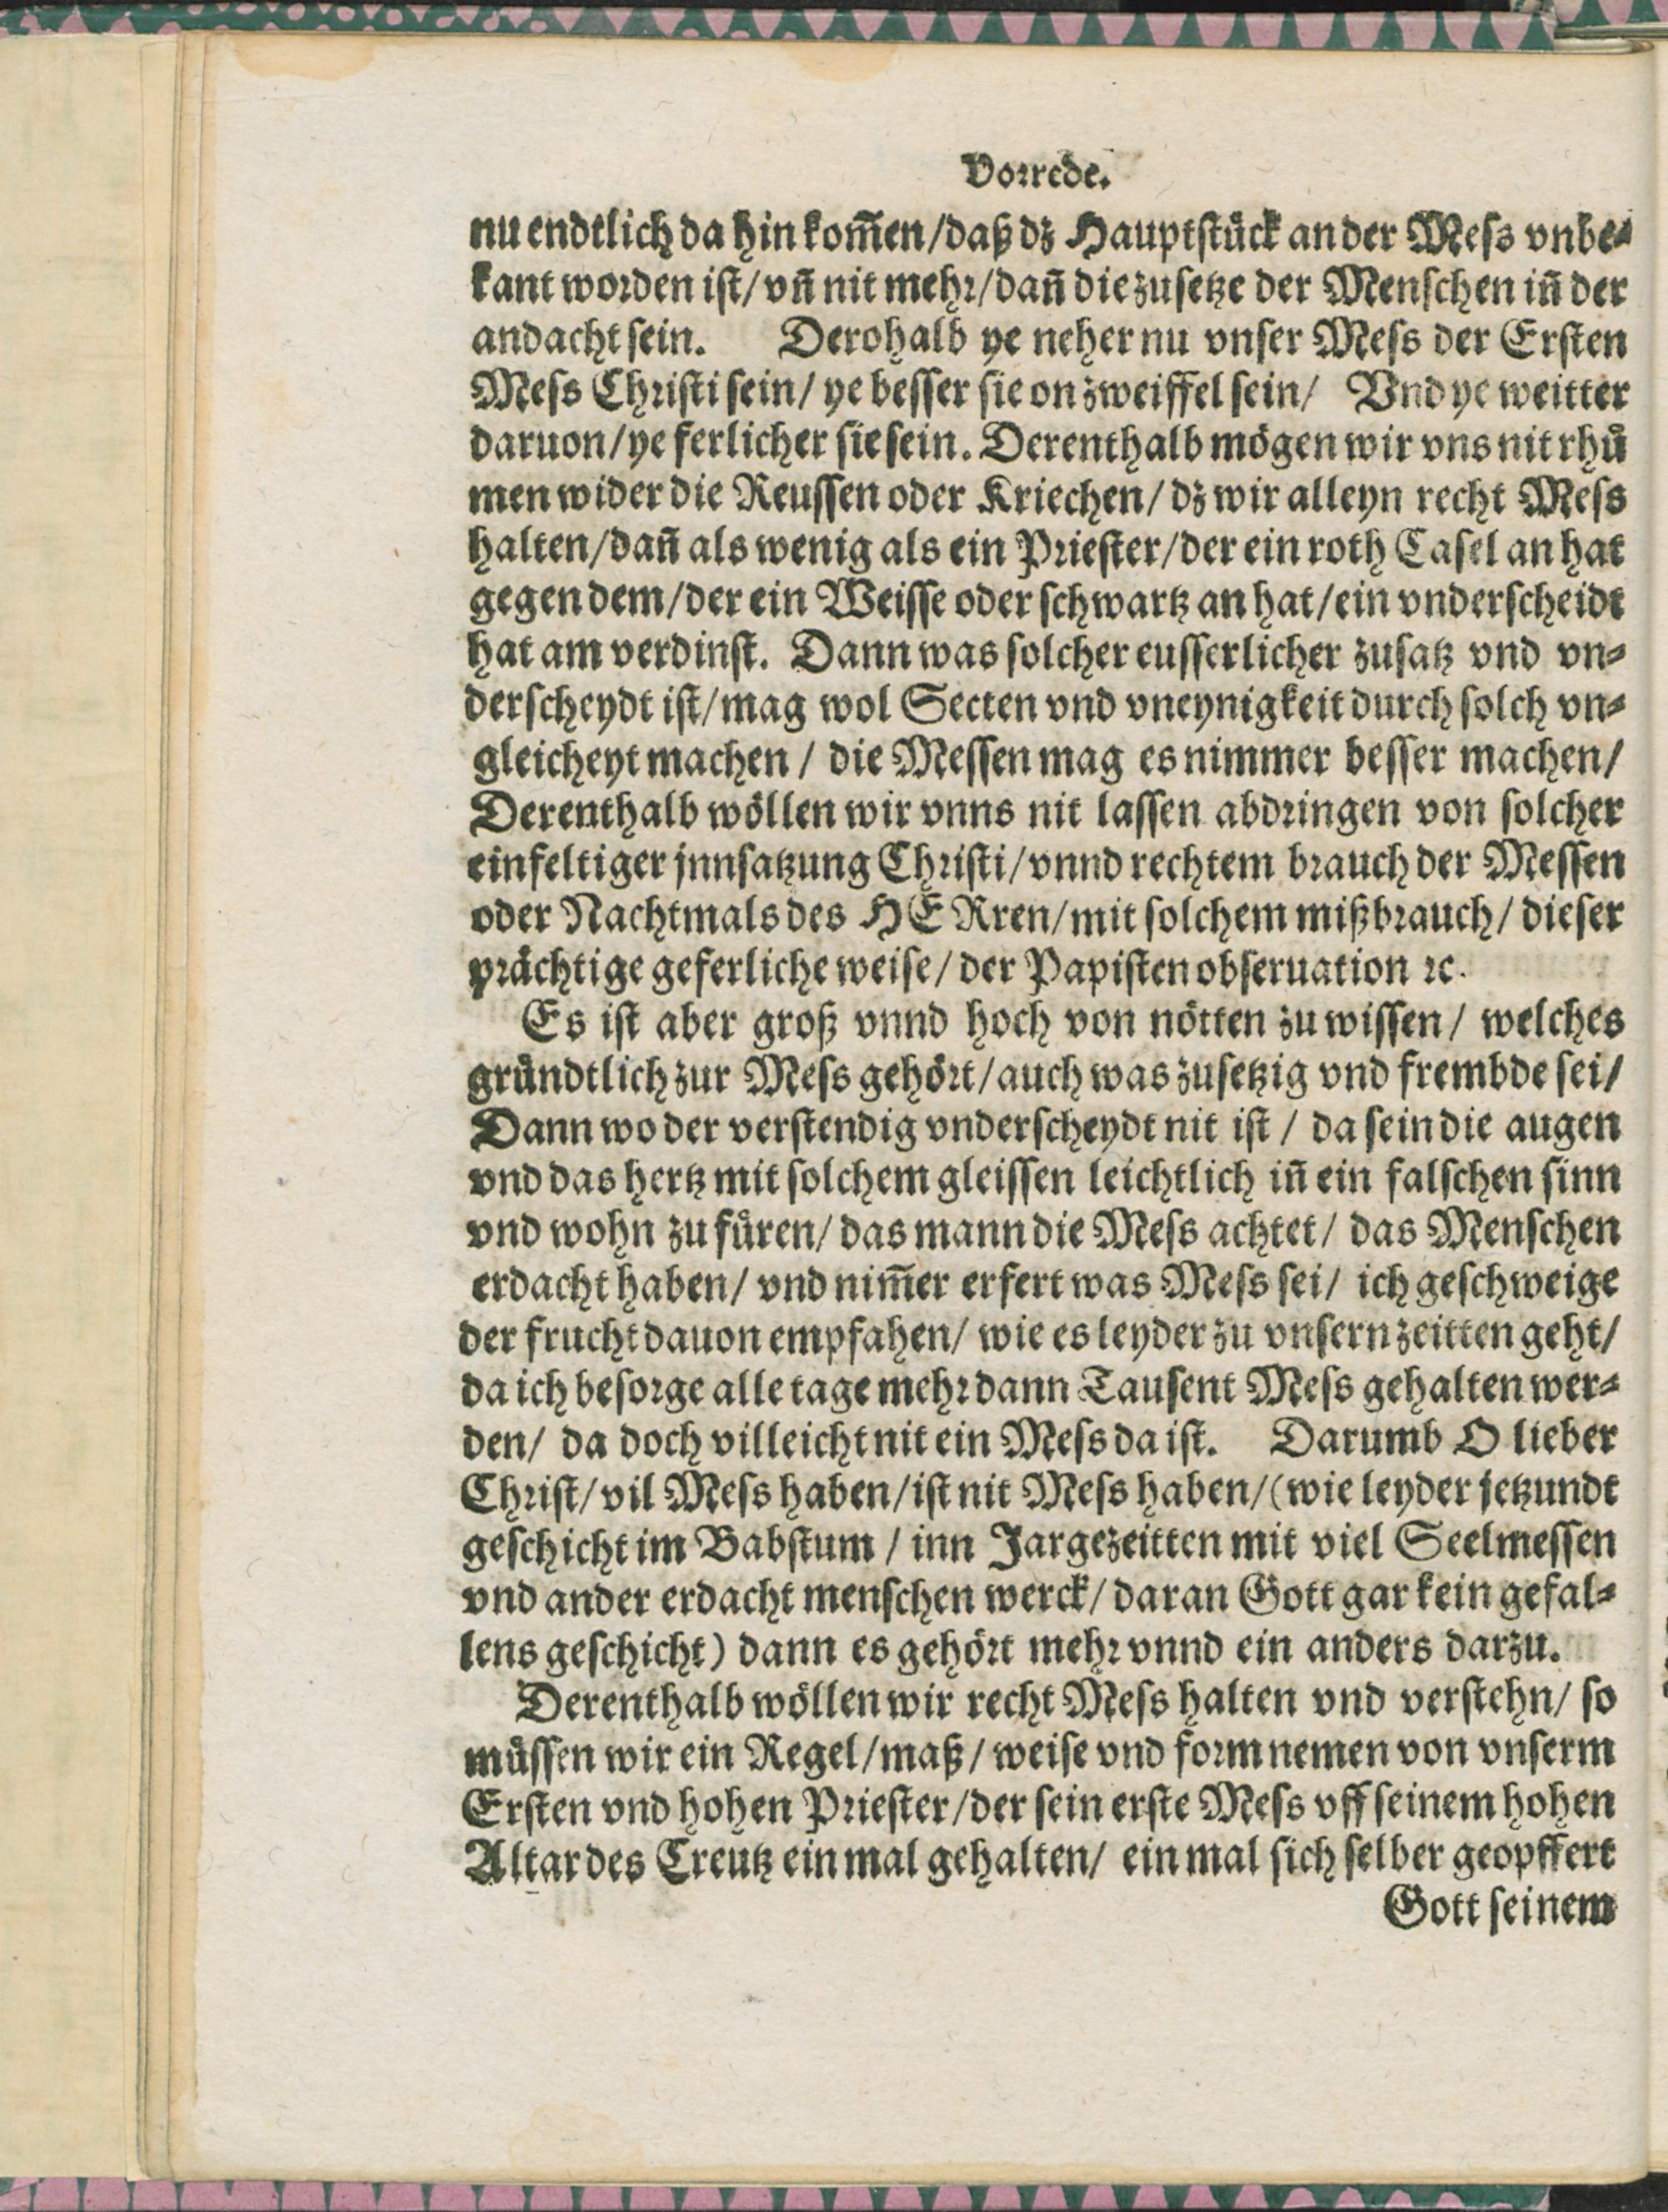 Vorrede.
nu endtlich da hin kom̃en/daß dz Hauptstuͤck an der Mess vnbe⸗
kant worden ist/vñ nit mehr/dañ die zusetze der Menschen iñ der
andacht sein. Derohalb ye neher nu vnser Mess der Ersten
Mess Christi sein/ ye besser sie on zweiffel sein/ Vnd ye weitter
daruon/ye ferlicher sie sein. Derenthalb moͤgen wir vns nit rhuͤ
men wider die Reussen oder Kriechen/ dz wir alleyn recht Mess
halten/dañ als wenig als ein Priester/der ein roth Casel an hat
gegen dem/der ein Weisse oder schwartz an hat/ein vnderscheidt
hat am verdinst. Dann was solcher eusserlicher zusatz vnd vn⸗
derscheydt ist/mag wol Secten vnd vneynigkeit durch solch vn⸗
gleicheyt machen / die Messen mag es nimmer besser machen/
Derenthalb woͤllen wir vnns nit lassen abdringen von solcher
einfeltiger jnnsatzung Christi/vnnd rechtem brauch der Messen
oder Nachtmals des HERren/mit solchem mißbrauch/ dieser
praͤchtige geferliche weise/ der Papisten obseruation ꝛc.
Es ist aber groß vnnd hoch von noͤtten zu wissen/ welches
gruͤndtlich zur Mess gehoͤrt/auch was zusetzig vnd frembde sei/
Dann wo der verstendig vnderscheydt nit ist / da sein die augen
vnd das hertz mit solchem gleissen leichtlich iñ ein falschen sinn
vnd wohn zu fuͤren/ das mann die Mess achtet/ das Menschen
erdacht haben/ vnd nim̃er erfert was Mess sei/ ich geschweige
der frucht dauon empfahen/ wie es leyder zu vnsern zeitten geht/
da ich besorge alle tage mehr dann Tausent Mess gehalten wer⸗
den/ da doch villeicht nit ein Mess da ist. Darumb O lieber
Christ/vil Mess haben/ist nit Mess haben/(wie leyder jetzundt
geschicht im Babstum / inn Jargezeitten mit viel Seelmessen
vnd ander erdacht menschen werck/ daran Gott gar kein gefal⸗
lens geschicht) dann es gehoͤrt mehr vnnd ein anders darzu.
Derenthalb woͤllen wir recht Mess halten vnd verstehn/ so
muͤssen wir ein Regel/maß/weise vnd form nemen von vnserm
Ersten vnd hohen Priester/der sein erste Mess vff seinem hohen
Altar des Creutz ein mal gehalten/ ein mal sich selber geopffert
Gott seinem